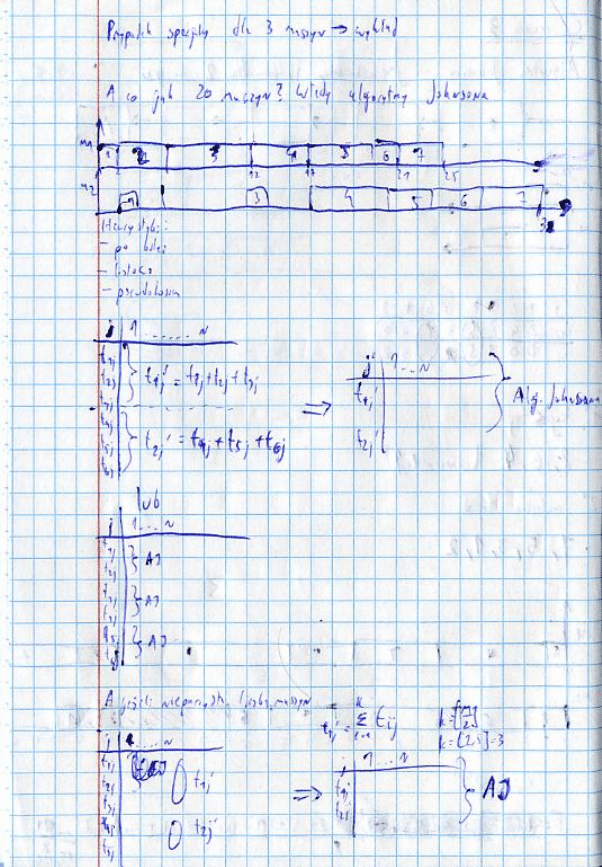 Przypadek specjalny dla 3 maszyn → wykład
A co jak 20 maszyn? Wtedy algorytmy Johnsona
m1 1 2 3 4 5 6 7
2 12 17 21 25
m2 1 3 4 5 6 7
Heurystyki:
- po kolei
- losowa
- pseudolosowa
j 1 ...... n
t1j
t2j t1j' = t1j + t2j + t3j
t3j
t4j
t5j t2j' = t4j + t5j + t6j
t6j
⇒
j 1...n
t1j'
t2j'
Alg. Johnsona
lub
j 1....n
t1j
t2j } AJ
t3j
t4j } AJ
t5j
t6j } AJ
A jeżeli nieparzysta liczba maszyn
t1j' = Σ tij
k = [2,5] = 3
j 1....n
t1j
t2j t1j'
t3j
t4j t2j'
t5j
⇒
j 1...n
t1j'
t2j'
} AJ